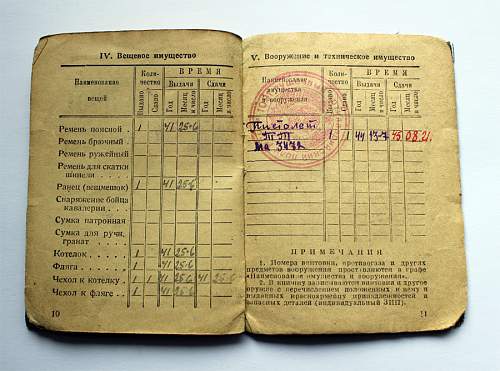 IV. Вещевое имущество
Наименование вещей
Коли-чество
ВРЕМЯ
Выдано
Сдано
Выдачи
Сдачи
Год
Месяц и число
Год
Месяц и число
Ремень поясной 1 41 25-6
Ремень брючный
Ремень ружейный
Ремень для скатки
шинели
Ранец (вещмешок) 1 41 25-6
Снаряжение бойца
кавалерии
Сумка патронная
Сумка для ручн.
гранат
Котелок 1 41 25-6
Фляга 1 41 25-6
Чехол к котелку 1 1 41 25-6 41 25-6
Чехол к фляге 1 41 25-6
10
V. Вооружение и техническое имущество
Наименование
имущества
и вооружения
Коли-чество
ВРЕМЯ
Выдано
Сдано
Выдачи
Сдачи
Год
Месяц и число
Год
Месяц и число
Пистолет
ТТ 1 1 44 13-7 45 08.21
ПРИМЕЧАНИЯ
1. Номера винтовки, противогаза и других
предметов вооружения проставляются в графе
«Наименование имущества и вооружения».
2. В книжку записываются винтовка и другое
оружие с перечислением положенных к нему и
выданных красноармейцу принадлежностей и
запасных деталей (индивидуальный ЗИП).
11